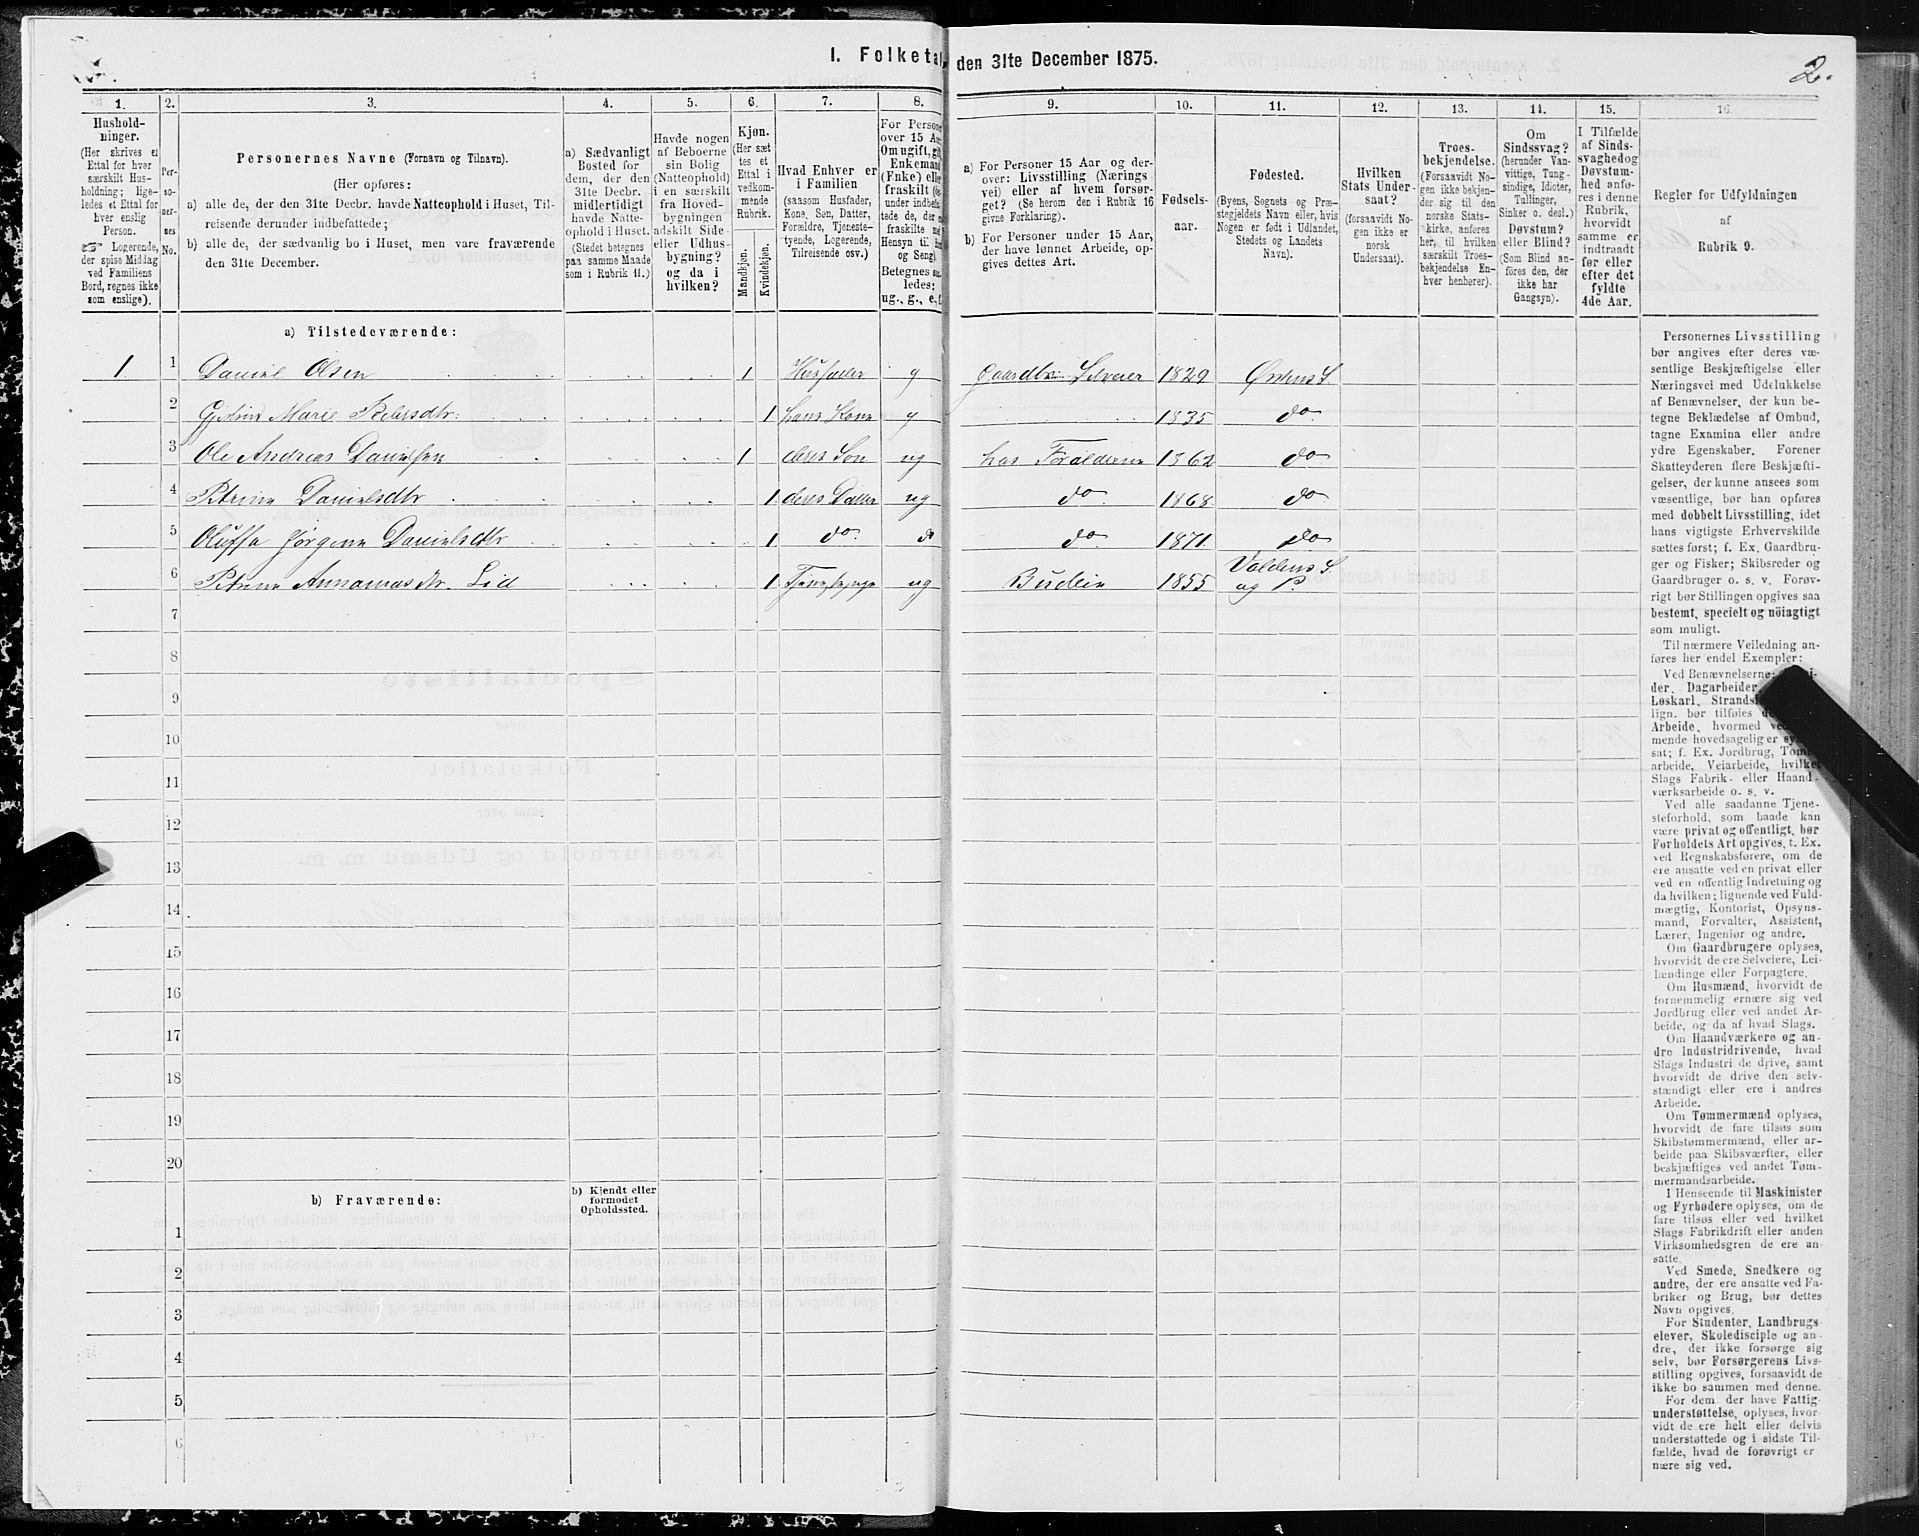 I. Folketal, den 31te December 1875.
2.
1.
2.
3.
4.
5.
6.
7.
8.
9.
10.
11.
12.
13.
14.
15.
16.
Hushold-
ninger.
(Her skrives et
Ettal for hver
særskilt Hus-
holdning; lige-
ledes et Ettal for
hver enslig
Person.
☞ Logerende,
der spise Middag
ved Familiens
Bord, regnes ikke
som enslige).
Per-
so-
ner-
nes
No.
Personernes Navne (Fornavn og Tilnavn).
(Her opføres:
a) alle de, der den 31te Decbr. havde Natteophold i Huset, Til-
reisende derunder indbefattede;
b) alle de, der sædvanlig bo i Huset, men vare fraværende
den 31te December.
a) Sædvanligt
Bosted for
dem, der den
31te Decbr.
midlertidigt
havde Natte-
ophold i Huset.
(Stedet betegnes
paa samme Maade
som i Rubrik 11.)
Havde nogen
af Beboerne
sin Bolig
(Natteophold)
i en særskilt
fra Hoved-
bygningen
adskilt Side-
eller Udhus-
bygning?
og da i
hvilken?
Kjøn.
(Her sæt-
tes et
Ettal i
vedkom-
mende
Rubrik.
Mandkjøn.
Kvindekjøn.
Hvad Enhver er
i Familien
(saasom Husfader,
Kone, Søn, Datter,
Forældre, Tjeneste-
tyende, Logerende,
Tilreisende osv.)
For Personer
over 15 Aar
Omugift, gift,
Enkemand
(Enke) eller
fraskilt
under indbefat-
tede de, der
fraskilte med
Hensyn til Bord
og Seng).
Betegnes saa-
ledes:
ug., g., e., f.
a) For Personer 15 Aar og der-
over: Livsstilling (Nærings-
vei) eller af hvem forsør-
get? (Se herom den i Rubrik 16
givne Forklaring).
b) For Personer under 15 Aar,
der have lønnet Arbeide, op-
gives dettes Art.
Fødsels-
aar.
Fødested.
(Byens, Sognets og Præ-
stegjeldets Navn eller, hvis
Nogen er født i Udlandet,
Stedets og Landets
Navn).
Hvilken
Stats Under-
saat?
(forsaavidt No-
gen ikke er
norsk
Undersaat).
Troes-
bekjendelse.
(Forsaavidt No-
gen ikke bekjen-
der sig til den
norske Stats-
kirke, anføres
her, til hvilken
særskilt Troes-
bekjendelse En-
hver henhører).
Om
Sindssvag?
(herunder Van-
vittige, Tung-
sindige, Idioter,
Tullinger,
Sinker o. desl.)
Døvstum?
eller Blind?
(Som Blind an-
føres den, der
ikke har
Gangsyn).
I Tilfælde
af Sinds-
svaghed og
Døvstum-
hed anfø-
res i denne
Rubrik,
hvorvidt
samme er
indtraadt
før eller
efter det
fyldte
4de Aar.
Regler for Udfyldningen
af
Rubrik 9.
a) Tilstedeværende:
1 1 Daniel Olsen 1 Husfader g Gaardbr. Selveier 1829 Østens S.
2 Marie Pedersdtr: 1 hans Kone g 1835 do
3 Ole Andreas Danielsen 1 deres Søn ug hos Forældrene 1862 do
4 Petrine Danielsdtr 1 deres Datter ug do 1868 do
5 Oluffa Jørgine Danielsdtr 1 do. do do. 1871 do
6 Petrine Annanasdtr. Lid 1 ug Budeie 1855 Voldens S.
og P.
7
8
9
10
11
12
13
14
15
16
17
18
19
20
b) Fraværende:
b) Kjendt eller
formodet
Opholdssted.
1
2
3
4
5
6
Personernes Livsstilling
bør angives efter deres væ-
sentlige Beskjæftigelse eller
Næringsvei med Udelukkelse
af Benævnelser, der kun be-
tegne Beklædelse af Ombud,
tagne Examina eller andre
ydre Egenskaber. Forener
Skatteyderen flere Beskjæfti-
gelser, der kunne ansees som
væsentlige, bør han opføres
med dobbelt Livsstilling, idet
hans vigtigste Erhvervskilde
sættes først; f. Ex. Gaardbru-
ger og Fisker; Skibsreder og
Gaardbruger o. s. v. Forøv-
rigt bør Stillingen opgives saa
bestemt, specielt og nöiagtigt
som muligt.
Til nærmere Veiledning an-
føres her endel Exempler:
Ved Benævnelserne:
der, Dagarbeider
Løskarl, Strands
lign. bør tilføies
Arbeide, hvormed
mende hovedsagelig er
sat; f. Ex. Jordbrug,
arbeide, Veiarbeide, hvilket
Slags Fabrik- eller Haand-
værksarbeide o. s. v.
Ved alle saadanne Tjene-
steforhold, som baade kan
være privat og offentligt, bør
Forholdets Art opgives, t. Ex.
ved Regnskabsførere, om de
ere ansatte ved en privat eller
ved en offentlig Indretning og
da hvilken; lignende ved Fuld-
mægtig, Kontorist, Opsyns-
mand, Forvalter, Assistent,
Lærer, Ingeniør og andre.
Om Gaardbrugere oplyses,
hvorvidt de ere Selveiere, Lei-
lændinge eller Forpagtere.
Om Husmænd, hvorvidt de
fornemmelig ernære sig ved
Jordbrug eller ved andet Ar-
beide, og da af hvad Slags.
Om Haandværkere og an-
dre Industridrivende, hvad
Slags Industri de drive, samt
hvorvidt de drive den selv-
stændigt eller ere i andres
Arbeide.
Om Tømmermænd oplyses,
hvorvidt de fare tilsøs som
Skibstømmermænd, eller ar-
beide paa Skibsværfter, eller
beskjæftiges ved andet Tøm-
mermandsarbeide.
I Henseende til Maskinister
og Fyrbødere oplyses, om de
fare tilsøs eller ved hvilket
Slags Fabrikdrift eller anden
Virksomhedsgren de ere an-
satte.
Ved Smede, Snedkere og
andre, der ere ansatte ved Fa-
briker og Brug, bør dettes
Navn opgives.
For Studenter, Landbrugs-
elever, Skoledisciple og an-
dre, der ikke forsørge sig
selv, bør Forsørgerens Livs-
stilling opgives, forsaavidt de
ikke bo sammen med denne.
For dem, der have Fattig-
understøttelse, oplyses, hvor-
vidt de ere helt eller delvis
understøttede og i sidste Til-
fælde, hvad de forøvrigt er-
nære sig ved.